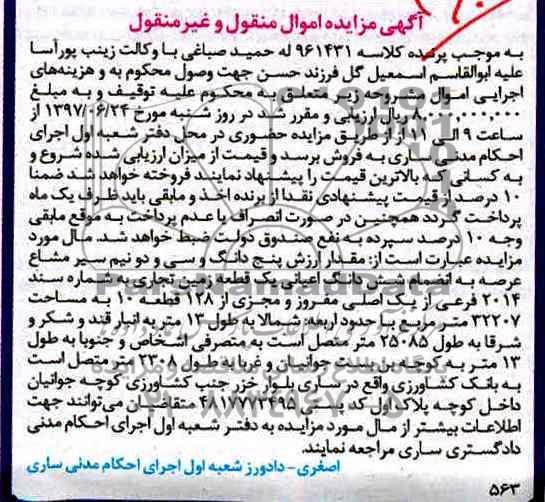 آگهی مزایده اموال منقول و غیرمنقول
به موجب پرونده کلاسه ۹۶۱۴۳۱ له حمید صباغی با وکالت زینب پورآسا
علیه ابوالقاسم اسمعیل گل فرزند حسن جهت وصول محکوم به و هزینه‌های
اجرایی اموال مشروحه زیر متعلق به محکوم علیه توقیف و به مبلغ
۸,۰۰۰,۰۰۰,۰۰۰ ریال ارزیابی و مقرر شد در روز شنبه مورخ ۱۳۹۷/۰۶/۲۴ از
ساعت ۹ الی ۱۱ از از طریق مزایده حضوری در محل دفتر شعبه اول اجرای
احکام مدنی ساری به فروش برسد و قیمت از میزان ارزیابی شده شروع و
به کسانی که بالاترین قیمت را پیشنهاد نمایند فروخته خواهد شد ضمنا
۱۰ درصد از قیمت پیشنهادی نقدا از برنده اخذ و مابقی باید ظرف یک ماه
پرداخت گردد همچنین در صورت انصراف یا عدم پرداخت به موقع مابقی
وجه ۱۰ درصد سپرده به نفع صندوق دولت ضبط خواهد شد. مال مورد
مزایده عبارت است از: مقدار ارزش پنج دانگ و سی و دو نیم سیر مشاع
عرصه به انضمام شش دانگ اعیانی یک قطعه زمین تجاری به شماره سند
۲۰۱۴ فرعی از یک اصلی مفروز و مجزی از ۱۲۸ قطعه ۱۰ به مساحت
۳۲۲۰۷ متر مربع با حدود اربعه: شمالا به طول ۱۳ متر به انبار قند و شکر و
شرقا به طول ۲۵۰۸۵ متر متصل است به متصرفی اشخاص و جنوبا به طول
۱۳ متر به کوچه بن بست جوانیان و غربا به طول ۲۳۰۸ متر متصل است
به بانک کشاورزی واقع در ساری بلوار خزر جنب کشاورزی کوچه جوانیان
داخل کوچه پلاک اول کد پستی ۴۸۱۷۷۷۲۴۹۵ متقاضیان می‌توانند جهت
اطلاعات بیشتر از مال مورد مزایده به دفتر شعبه اول اجرای احکام مدنی
دادگستری ساری مراجعه نمایند.
اصغری- دادورز شعبه اول اجرای احکام مدنی ساری
۵۶۳